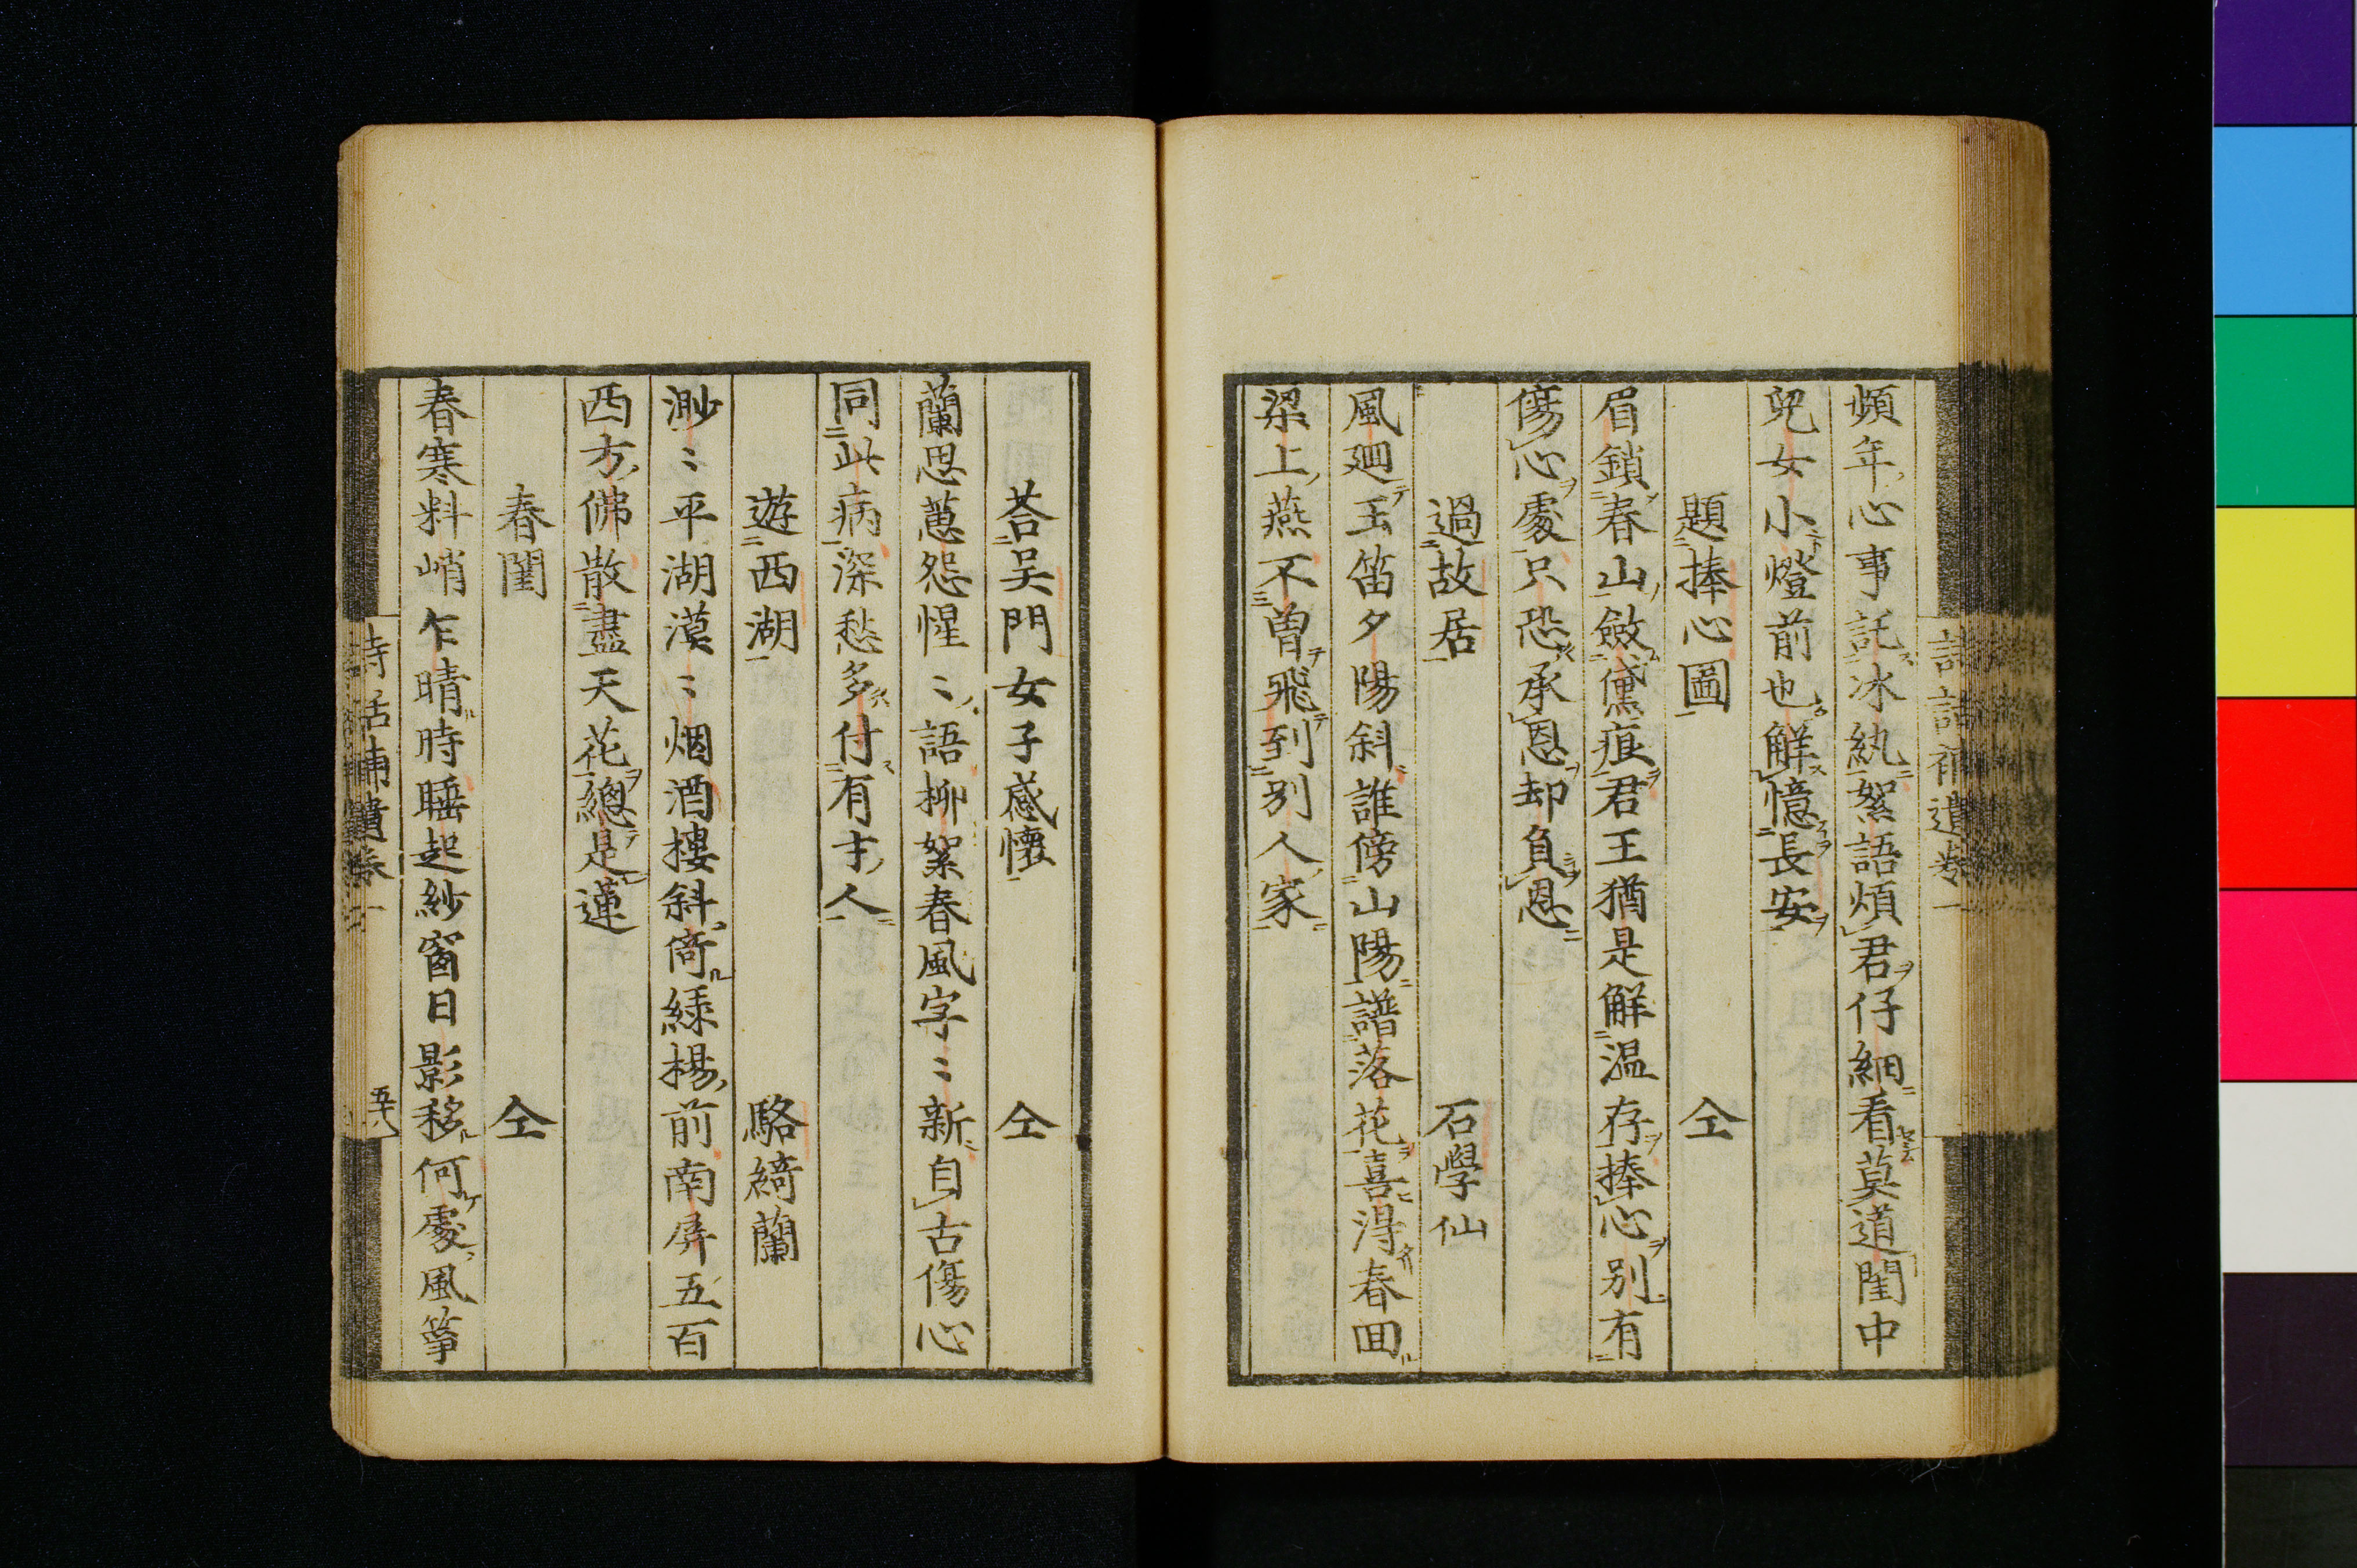 頻年心事託冰紈絮語煩君仔細看莫道閨中
兒女小燈前也觧憶長安
題捧心圖 仝
眉鎖春山斂黛痕君王猶是觧温存捧心別有
傷心處只恐承恩却負恩
過故居 石學仙
風廻玉笛夕陽斜誰傍山陽譜落花喜得春回
梁上燕不曽飛到別人家
荅吴門女子感懷 仝
蘭思蕙怨惺〻語柳絮春風字〻新自古傷心
同此病深愁多付有才人
遊西湖 駱綺蘭
渺〻平湖漠〻烟酒樓斜倚緑楊前南屏五百
西方佛散盡天花總是蓮
春閨 仝
春寒料峭乍晴時睡起紗窗日影移何處風箏
詩話補遺卷一